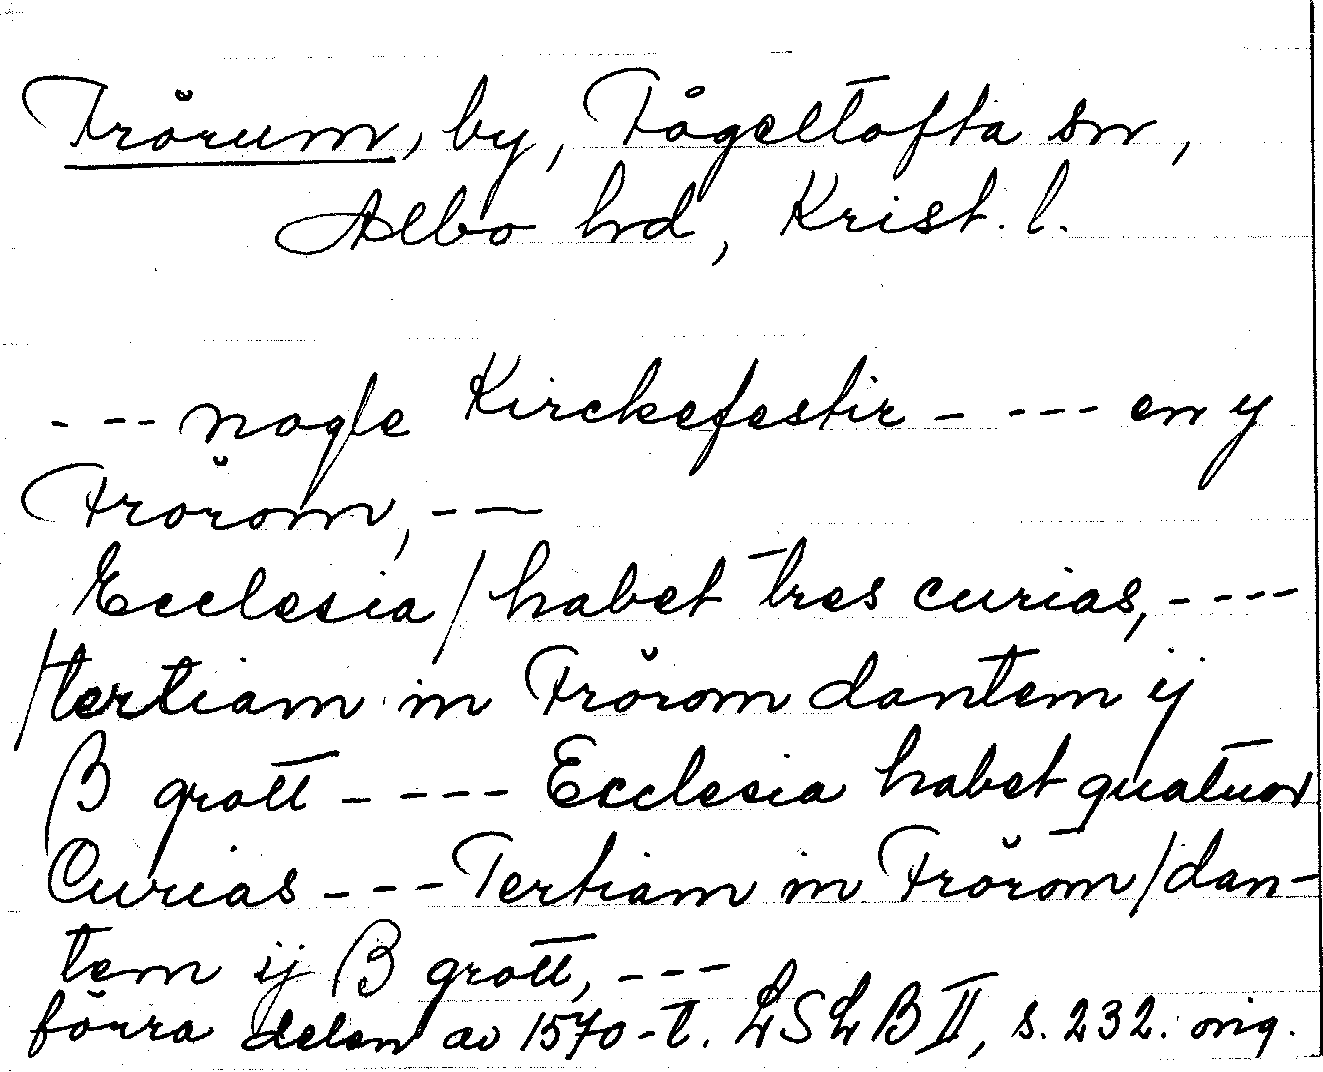 Frörum, by, Fågeltofta sn,
Albo hd, Krist. l.
- -- nogle Kirckefestir - --- en y
Frörom, ---
Ecclesia / habet tres curias, ----
/tertiam in Frörom dantem ij
β grott - --- Ecclesia habet quatuor
Curias - -- Tertiam in Frörom̄ / dan-
tem ij β grott, ---
förra delen av 1570-t. LSLB II, s. 232. orig.